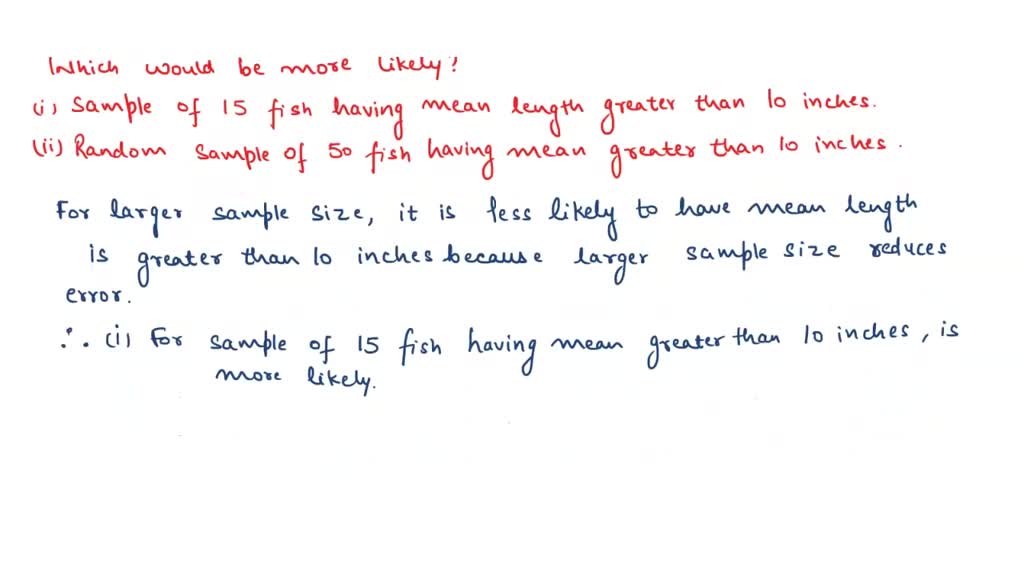 Which would be more likely?
(i) Sample of 15 fish having mean length greater than 10 inches.
(ii) Random sample of 50 fish having mean greater than 10 inches.
For larger sample size, it is less likely to have mean length
is greater than 10 inches because larger sample size reduces
error.
∴ (i) For sample of 15 fish having mean greater than 10 inches, is
more likely.